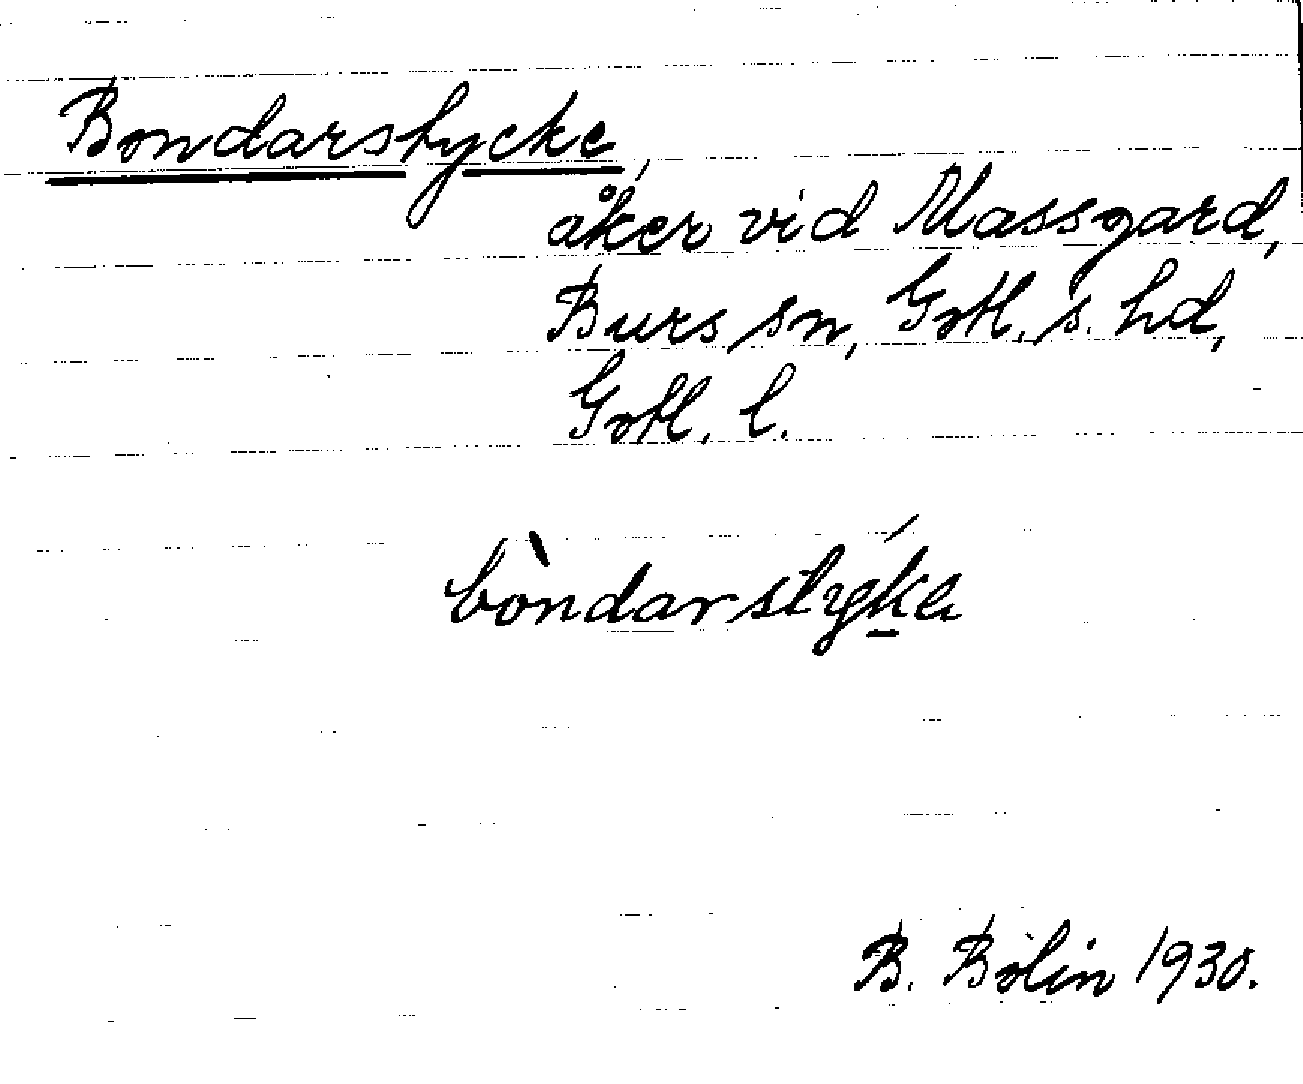 Bondarstycke,
åker vid Massgard,
Burs sn, Gotl. s. hd,
Gotl. l.
bòndarstýk̲a
B. Bolin 1930.